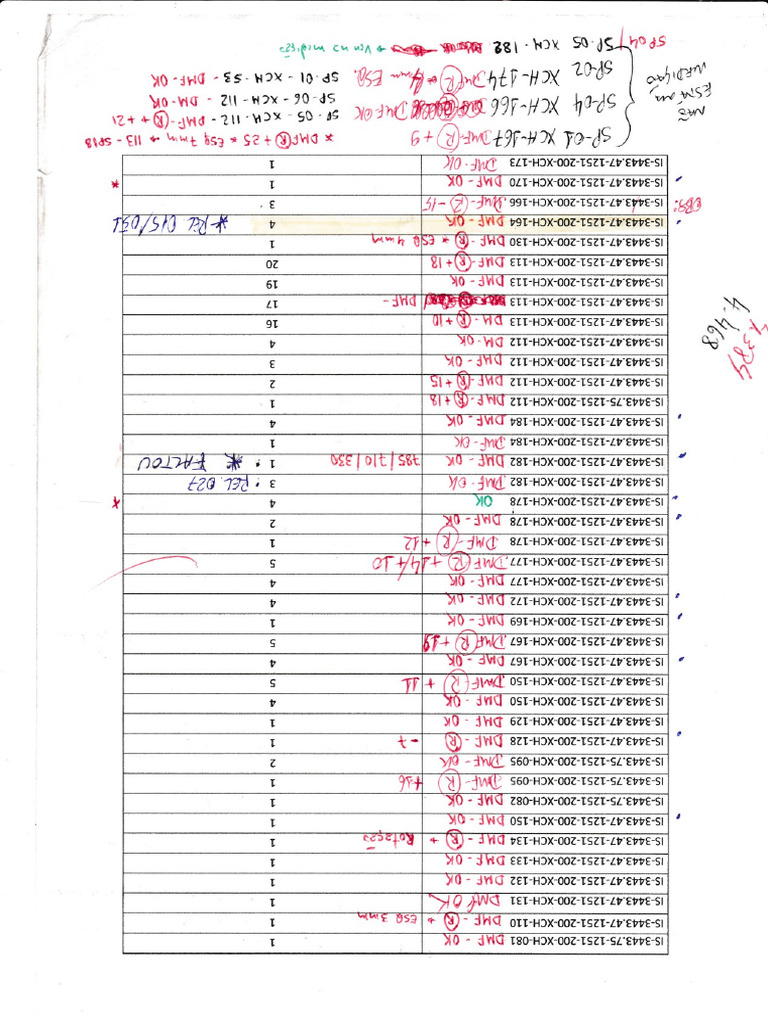 IS-3443.75-1251-200-XCH-081 DMF - OK 1
IS-3443.47-1251-200-XCH-110 DMF - (R) → ESQ 3mm 1
IS-3443.47-1251-200-XCH-131 DMF OK 1
IS-3443.47-1251-200-XCH-132 DMF - OK 1
IS-3443.47-1251-200-XCH-133 DMF - OK 1
IS-3443.47-1251-200-XCH-134 DMF - (R) → Rotação 1
IS-3443.47-1251-200-XCH-150 DMF - OK 1
IS-3443.75-1251-200-XCH-082 DMF - OK 1
IS-3443.75-1251-200-XCH-095 DMF - (R) +16 1
IS-3443.75-1251-200-XCH-095 DMF - OK 2
IS-3443.47-1251-200-XCH-128 DMF - (R) -7 1
IS-3443.47-1251-200-XCH-129 DMF - OK 1
IS-3443.47-1251-200-XCH-150 DMF - OK 4
IS-3443.47-1251-200-XCH-150 DMF - (R) + 11 5
IS-3443.47-1251-200-XCH-167 DMF - OK 4
IS-3443.47-1251-200-XCH-167 DMF (R) +19 5
IS-3443.47-1251-200-XCH-169 DMF - OK 1
IS-3443.47-1251-200-XCH-172 DMF - OK 4
IS-3443.47-1251-200-XCH-177 DMF - OK 4
IS-3443.47-1251-200-XCH-177 DMF (R) +14/+10 5
IS-3443.47-1251-200-XCH-178 DMF - (R) +12 1
IS-3443.47-1251-200-XCH-178 DMF - OK 2
IS-3443.47-1251-200-XCH-178 OK 4 *
IS-3443.47-1251-200-XCH-182 DMF - OK 3 REL. 027
IS-3443.47-1251-200-XCH-182 DMF - OK 785/710/330 1 * FALTOU
IS-3443.47-1251-200-XCH-184 DMF - OK 1
IS-3443.47-1251-200-XCH-184 DMF - OK 4
IS-3443.75-1251-200-XCH-112 DMF - (R) +18 1
IS-3443.47-1251-200-XCH-112 DMF - (R) +15 2
IS-3443.47-1251-200-XCH-112 DMF - OK 3
IS-3443.47-1251-200-XCH-112 DM - OK 4
IS-3443.47-1251-200-XCH-113 DM - (R) +10 16
IS-3443.47-1251-200-XCH-113 DMF - 17
IS-3443.47-1251-200-XCH-113 DMF - OK 19
IS-3443.47-1251-200-XCH-113 DMF - (R) +18 20
IS-3443.47-1251-200-XCH-130 DMF - (R) → ESQ 4mm 1
IS-3443.47-1251-200-XCH-164 DMF - OK 4 * REL 015/031
OBS: IS-3443.47-1251-200-XCH-166 DMF - (R) -15 3
IS-3443.47-1251-200-XCH-170 DMF - OK 1 *
IS-3443.47-1251-200-XCH-173 DMF - OK 1
4.384
4.468
NÃO
ESTÁ NA
MEDIÇÃO
SP-01 XCH-167 DMF - (R) +9
SP-04 XCH-166 DMF OK
SP-02 XCH-174 DMF (R) → 4mm ESQ.
SP-05 XCH-182
SP 04
* DMF (R) +25 → ESQ 7mm → 113 - SP18
SP-05 - XCH-112 - DMF - (R) → +21
SP-06 - XCH-112 - DM - OK
SP-01 - XCH-53 - DMF - OK